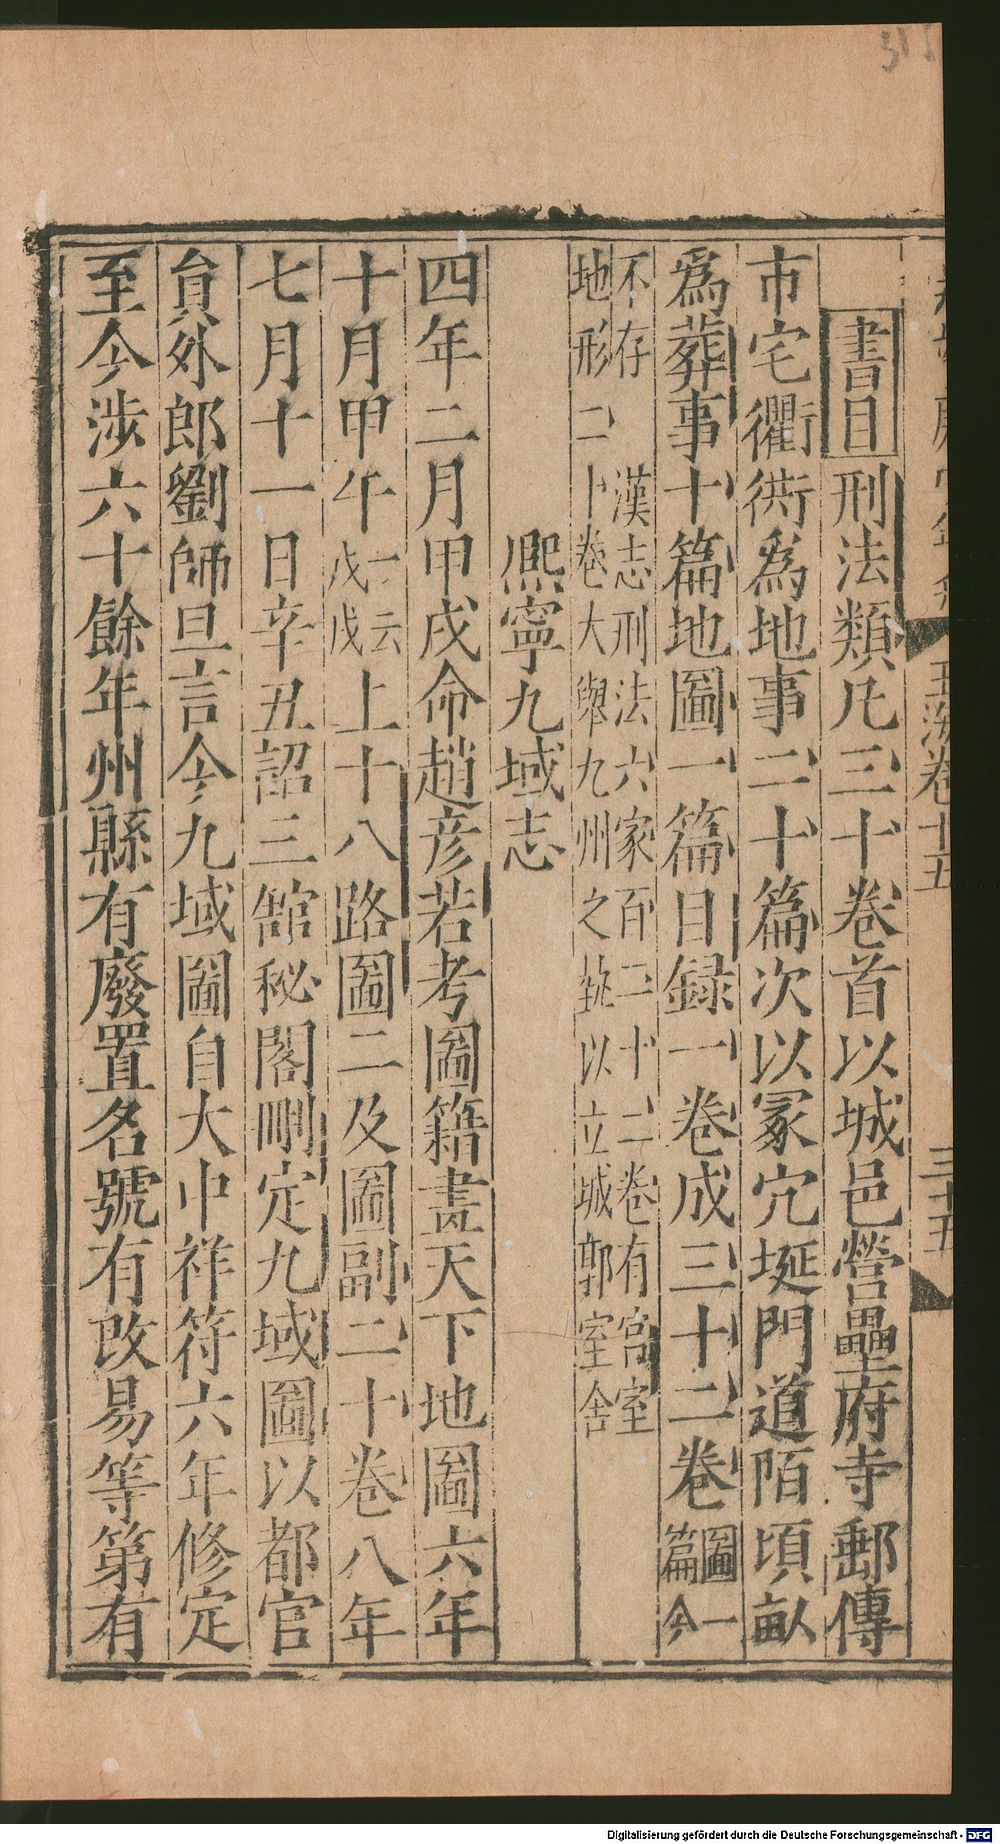 玉海卷十五
三十五
書目刑法類凡三十卷首以城邑營壘府寺郵傳
市宅衢衖爲地事二十篇次以冢穴埏門道陌頃畝
爲葬事十篇地圖一篇目録一卷成三十二卷圖一篇今
不存 漢志刑法六家百二十二卷有宮室
地形二十卷大舉九州之埶以立城郭室舍
熈寧九域志
四年二月甲戌命趙彦若考圖籍畫天下地圖六年
十月甲午一云戊戌上十八路圖二及圖副二十卷八年
七月十一日辛丑詔三館秘閣刪定九域圖以都官
貟外郎劉師旦言今九域圖自大中祥符六年修定
至今渉六十餘年州縣有廢置名號有改易等第有
Digitalisierung gefördert durch die Deutsche Forschungsgemeinschaft - DFG